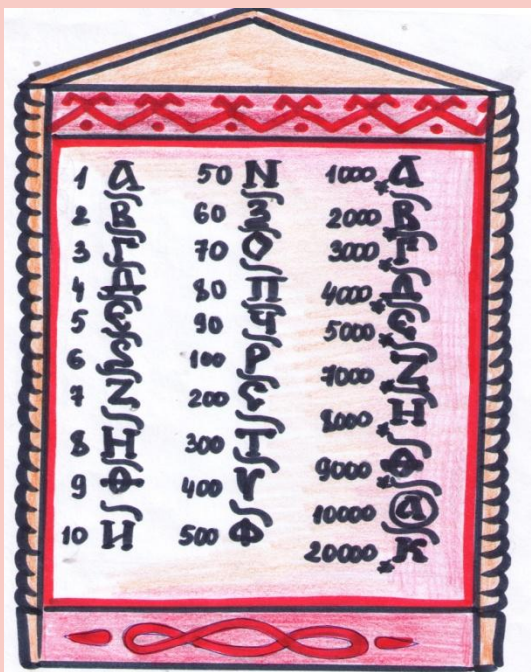 1 А
2 В
3 Г
4 Д
5 Є
6 Ѕ
7 Z
8 Н
9 Ф
10 И
50 N
60 З
70 О
80 П
90 Ч
100 Р
200 Є
300 Т
400 Ѵ
500 Ф
1000 ҂А
2000 ҂В
3000 ҂Г
4000 ҂Д
5000 ҂Є
7000 ҂Z
8000 ҂Н
9000 ҂Ф
10000 Ⓐ
20000 ҂К